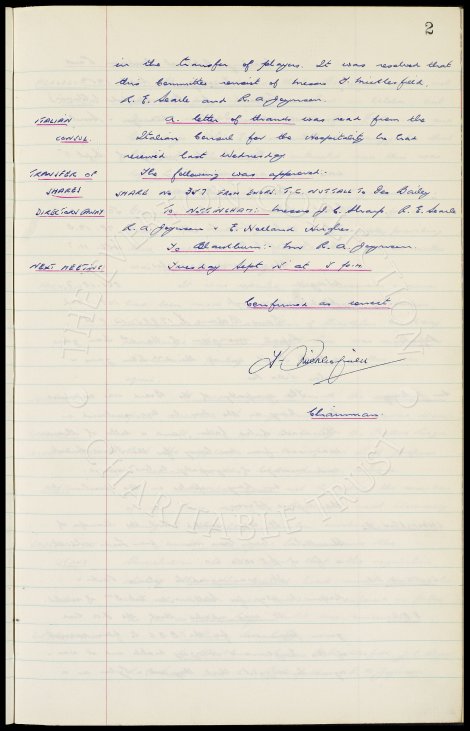 2
in the transfer of players. It was resolved that
this Committee consist of Messrs
R. E. Searle and R. A. Joynson.
ITALIAN A letter of thanks was read from the
CONSUL. Italian Consul for the Hospitality he had
received last Wednesday
TRANSFER OF The following was approved.
SHARES SHARE No 357 FROM T. C. NUTTALL To Bailey
DIRECTORS AWAY To NOTTINGHAM:- Messrs J. C. Sharp. R. E. Searle
R. A. Joynson & E. Holland Hughes
To Blackburn:- Mr R. A. Joynson.
NEXT MEETING. Tuesday Sept at 5 p.m.
Confirmed as correct
Chairman.
THE EVERTON COLLECTION
CHARITABLE TRUST